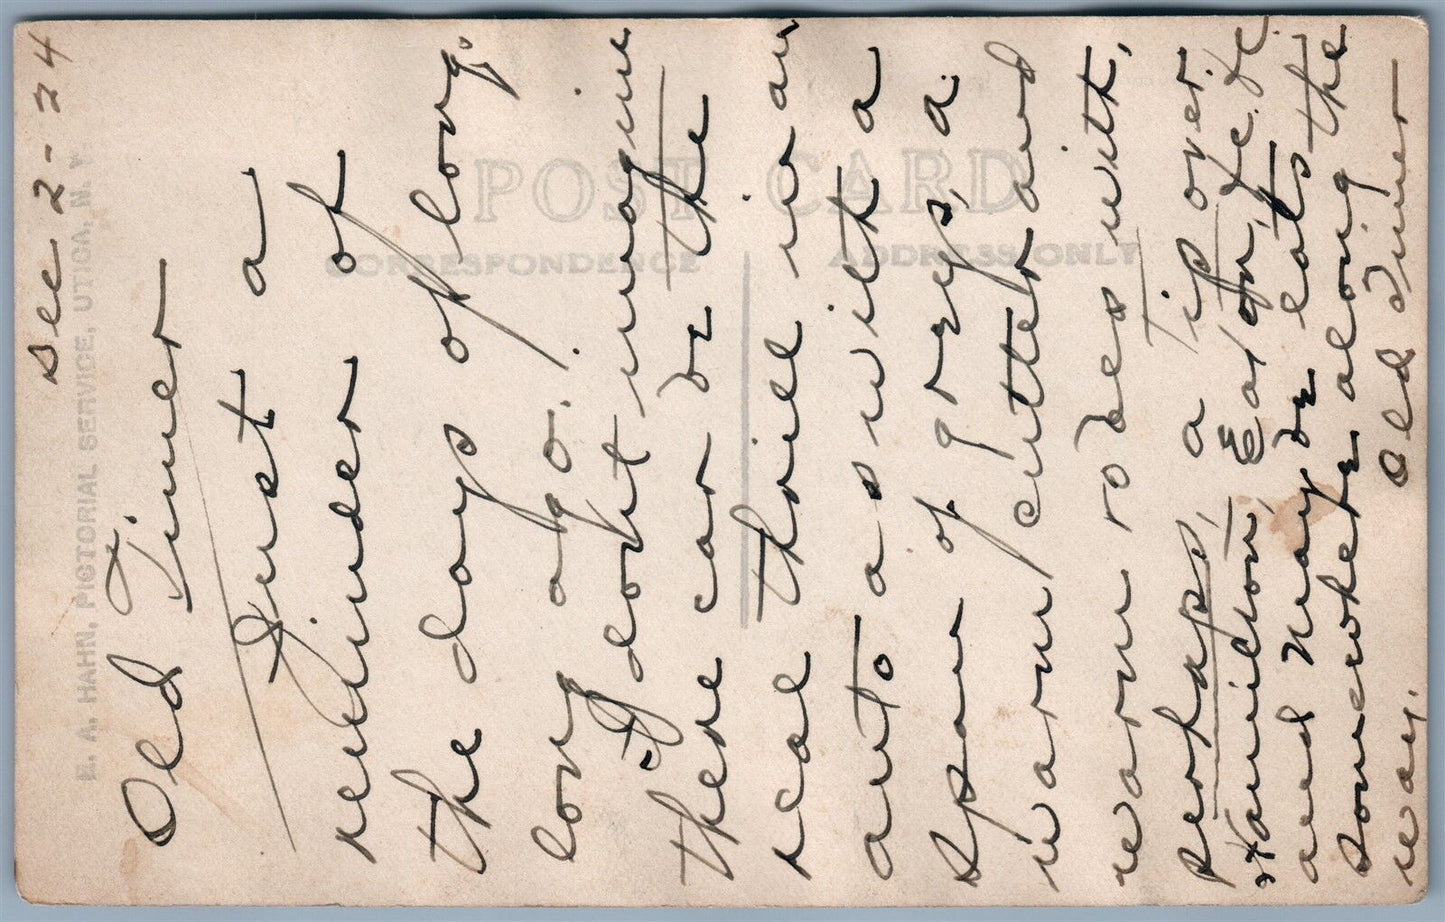 Dec 2-24
Old Timer
Just a
reminder of
the days of long
long ago!
I dont imagine
there can be the
real thrill in an
auto as with a
span of greys, a
warm cutter and
warm robes with,
perhaps, a tip over.
Hamilton, Eaton, &c. &c.
and may be eats the
somewhere along the
way. Old Timer
POST CARD
CORRESPONDENCE
ADDRESS ONLY
E. A. HAHN, PICTORIAL SERVICE, UTICA, N. Y.